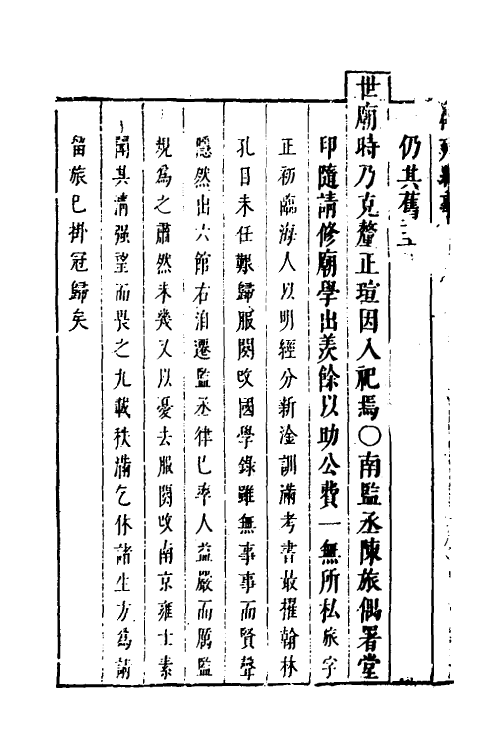 仍其舊云
世廟時乃克釐正瑄因入祀焉〇南監丞陳旅偶署堂
印隨請修廟學出羨餘以助公費一無所私旅字
正初臨海人以明經分新淦訓滿考書最擢翰林
孔目未任艱歸服闋改國學錄雖無事事而賢聲
隱然出六館右洎遷監丞律巳率人益嚴而厲監
規爲之肅然未幾又以憂去服闋改南京雍士素
聞其淸强望而畏之九載秩滿乞休諸生方爲請
留旅巳掛冠歸矣